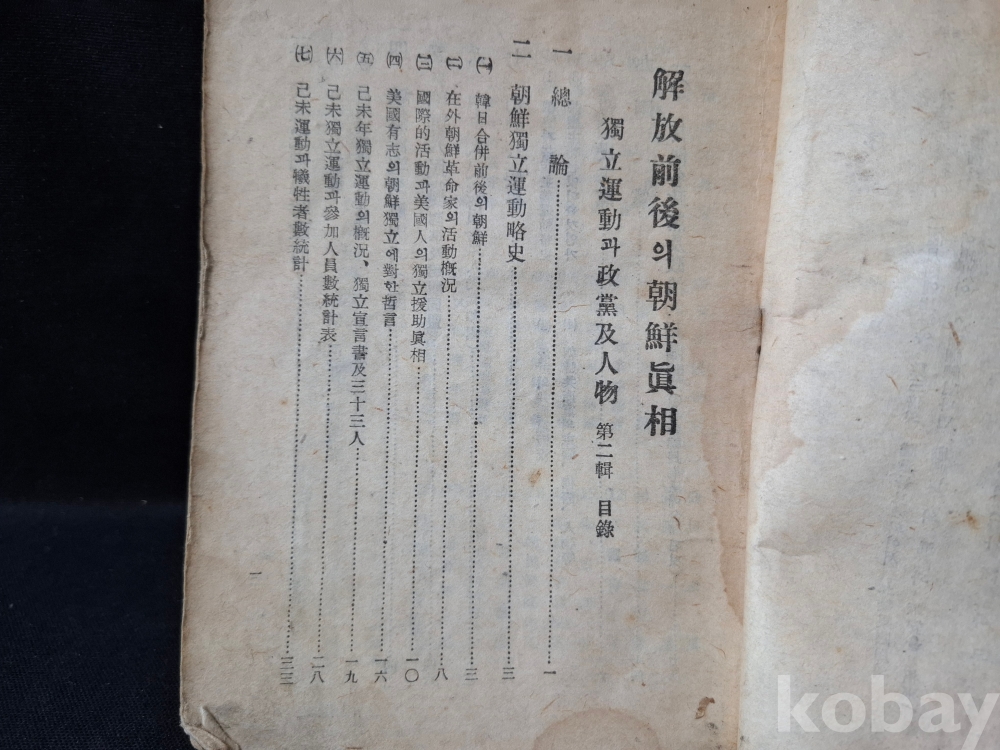 解放前後의朝鮮眞相
獨立運動과政黨及人物 第二輯 目錄
一 總論 一
二 朝鮮獨立運動略史 三
㈠ 韓日合併前後의朝鮮 三
㈡ 在外朝鮮革命家의活動槪況 八
㈢ 國際的活動과美國人의獨立援助眞相 一〇
㈣ 美國有志의朝鮮獨立에對한哲言 一六
㈤ 己未年獨立運動의槪況、獨立宣言書及三十三人 一九
㈥ 己未獨立運動과參加人員數統計表 二八
㈦ 己未運動과犧牲者數統計 三三
一
kobay